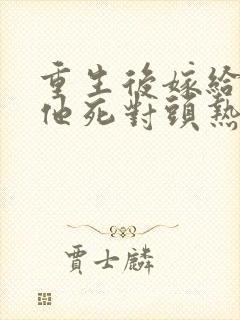 重生後嫁給
他死對頭熱
賈士麟